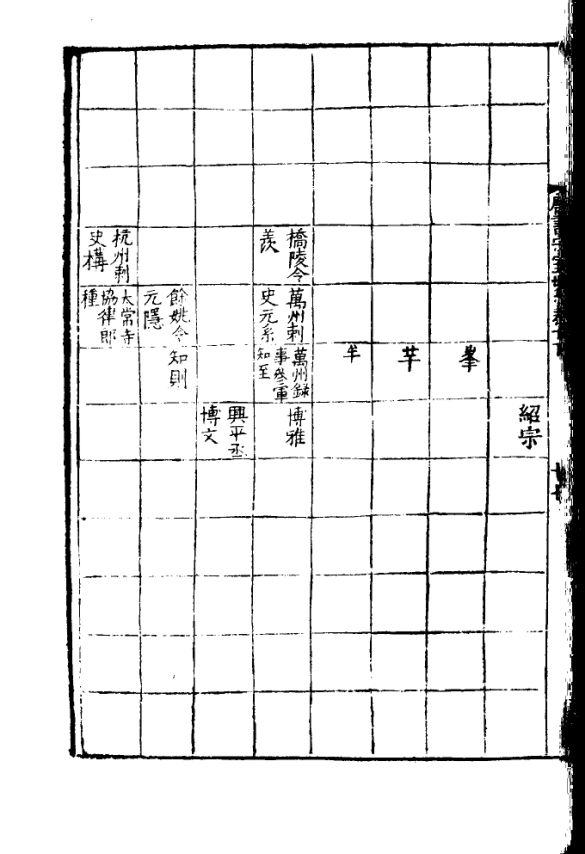 紹宗
峯
芊
羋
橋陵令
羨
萬州刺
史元系
萬州録
事參軍
知至
博雅
興平丞
博文
餘姚令
元隱
知則
杭州刺
史構
太常寺
協律郎
種